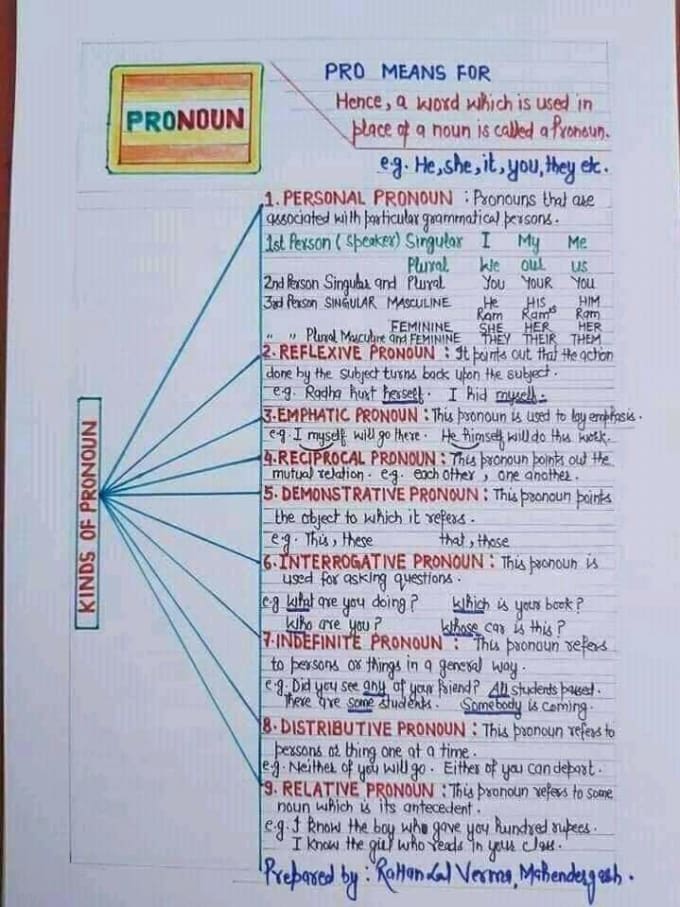 PRONOUN
PRO MEANS FOR
Hence, a word which is used in
place of a noun is called a Pronoun.
e.g. He, she, it, you, they etc.
KINDS OF PRONOUN
1. PERSONAL PRONOUN : Pronouns that are
associated with particular grammatical persons.
1st Person (Speaker) Singular I My Me
Plural We our us
2nd Person Singular and Plural You YOUR You
3rd Person SINGULAR MASCULINE He HIS HIM
Ram Ram's Ram
FEMININE SHE HER HER
" " Plural Masculine and FEMININE THEY THEIR THEM
2. REFLEXIVE PRONOUN : It points out that the action
done by the subject turns back upon the subject.
e.g. Radha hurt herself. I hid myself.
3. EMPHATIC PRONOUN : This pronoun is used to lay emphasis.
e.g. I myself will go there. He himself will do this work.
4. RECIPROCAL PRONOUN : This pronoun points out the
mutual relation. e.g. each other, one another.
5. DEMONSTRATIVE PRONOUN : This pronoun points
the object to which it refers.
e.g. This, these that, those
6. INTERROGATIVE PRONOUN : This pronoun is
used for asking questions.
e.g What are you doing? Which is your book?
Who are you? Whose car is this?
7. INDEFINITE PRONOUN : This pronoun refers
to persons or things in a general way.
e.g. Did you see any of your friend? All students passed.
There are some students. Somebody is coming.
8. DISTRIBUTIVE PRONOUN : This pronoun refers to
persons or thing one at a time.
e.g. Neither of you will go. Either of you can depart.
9. RELATIVE PRONOUN : This pronoun refers to some
noun which is its antecedent.
e.g. I know the boy who gave you hundred rupees.
I know the girl who reads in your class.
Prepared by : Rattan Lal Verma, Mahendergarh.